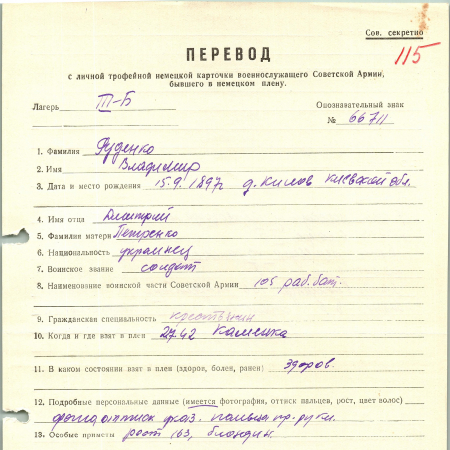 Сов. секретно
115
ПЕРЕВОД
с личной трофейной немецкой карточки военнослужащего Советской Армии,
бывшего в немецком плену.
Лагерь III-Б
Опознавательный знак
№ 66711
1. Фамилия Руденко
2. Имя Владимир
3. Дата и место рождения 15.9.1897г д. Килов Киевской обл.
4. Имя отца Дмитрий
5. Фамилия матери Петренко
6. Национальность украинец
7. Воинское звание солдат
8. Наименование воинской части Советской Армии 105 раб. бат.
9. Гражданская специальность крестьянин
10. Когда и где взят в плен 2.7.42 Каменка
11. В каком состоянии взят в плен (здоров, болен, ранен) здоров.
12. Подробные персональные данные (имеется фотография, оттиск пальцев, рост, цвет волос)
оттиск указ. пальца пр. руки.
13. Особые приметы рост 163, блондин.